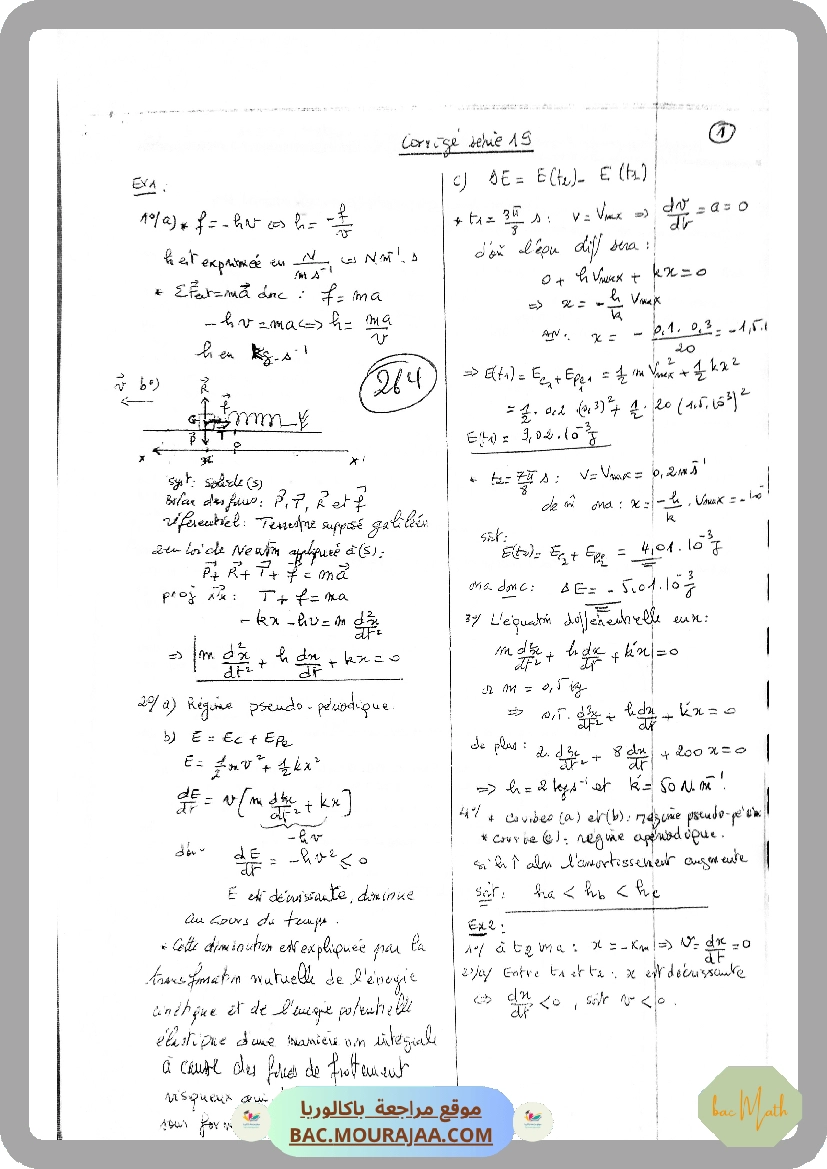 Corrigé serie 19
①
Ex1:
1°/a) * f = -hv ⇔ h = -f/v
h est exprimée en N/m.s⁻¹ ⇔ N.m⁻¹.s
* ΣF⃗ext = ma⃗ donc : f = ma
-hv = ma ⇔ h = ma/v
h en kg.s⁻¹
264
v⃗ b°)
R⃗
f⃗
G
P⃗ T⃗ O
x x'
syst: solide (s)
Bilan des forces: P⃗, T⃗, R⃗ et f⃗
référentiel: Terrestre supposé galiléen
2em loi de Newton appliquée à (s):
P⃗ + R⃗ + T⃗ + f⃗ = ma⃗
proj : T + f = ma
-kx - hv = m d²x/dt²
⇒ m d²x/dt² + h dx/dt + kx = 0
2°/a) Régime pseudo-périodique.
b) E = Ec + Epe
E = 1/2 mv² + 1/2 kx²
dE/dt = v [m d²x/dt² + kx]
-hv
dE/dt = -hv² ≤ 0
E est décroissante, diminue
au cours du temps.
* Cette diminution est expliquée par la
transformation mutuelle de l'énergie
cinétique et de l'énergie potentielle
élastique d'une manière non intégrale
à cause des forces de frottement
visqueux
sous
c) ΔE = E(t2) - E(t1)
* t1 = 3π/8 s : v = Vmax ⇒ dv/dt = a = 0
d'où l'équ diff sera :
0 + h Vmax + kx = 0
⇒ x = -h/k Vmax
AN: x = - 0,1 . 0,3/20 = -1,5.1
⇒ E(t1) = Ec1 + Epe1 = 1/2 m Vmax² + 1/2 kx²
= 1/2 . 0,2 . (0,3)² + 1/2 . 20 (1,5.10⁻³)²
E(t1) = 9,02.10⁻³ J
* t2 = 7π/8 s : v = Vmax = 0,2 ms⁻¹
de m̂ ona : x = -h/k . Vmax = -10⁻
soit:
E(t2) = Ec2 + Epe2 = 4,01.10⁻³ J
ona donc : ΔE = -5,01.10⁻³ J
3°/ L'equation différentielle en x:
m d²x/dt² + h dx/dt + k'x = 0
or m = 0,5 kg
⇒ 0,5. d²x/dt² + h dx/dt + k'x = 0
de plus : 2. d²x/dt² + 8 dx/dt + 200 x = 0
⇒ h = 2 kg s⁻¹ et k' = 50 N.m⁻¹.
4°/ * courbes (a) et (b) : régime pseudo-pér
* courbe (c) : régime apériodique.
si h ↑ alors l'amortissement augmente
soit : ha < hb < hc
Ex2 :
1°/ à t2 ona : x = -xm ⇒ v = dx/dt = 0
2°/a) Entre t1 et t2 : x est décroissante
⇔ dx/dt < 0, soit v < 0.
موقع مراجعة باكالوريا
BAC.MOURAJAA.COM
bac Math